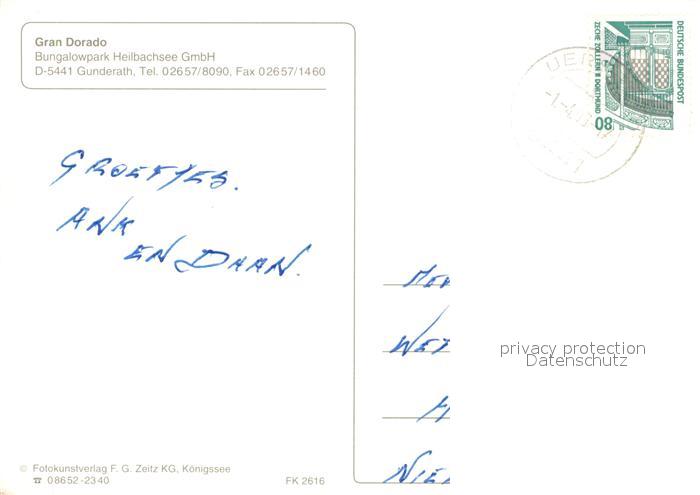 Gran Dorado
Bungalowpark Heilbachsee GmbH
D-5441 Gunderath, Tel. 02657/8090, Fax 02657/1460
GROETJES.
ANK
EN DAAN.
DEUTSCHE BUNDESPOST
ZECHE ZOLLERN II DORTMUND
80
WET
M
NIE
privacy protection
Datenschutz
© Fotokunstverlag F. G. Zeitz KG, Königssee
☎ 08652-2340
FK 2616